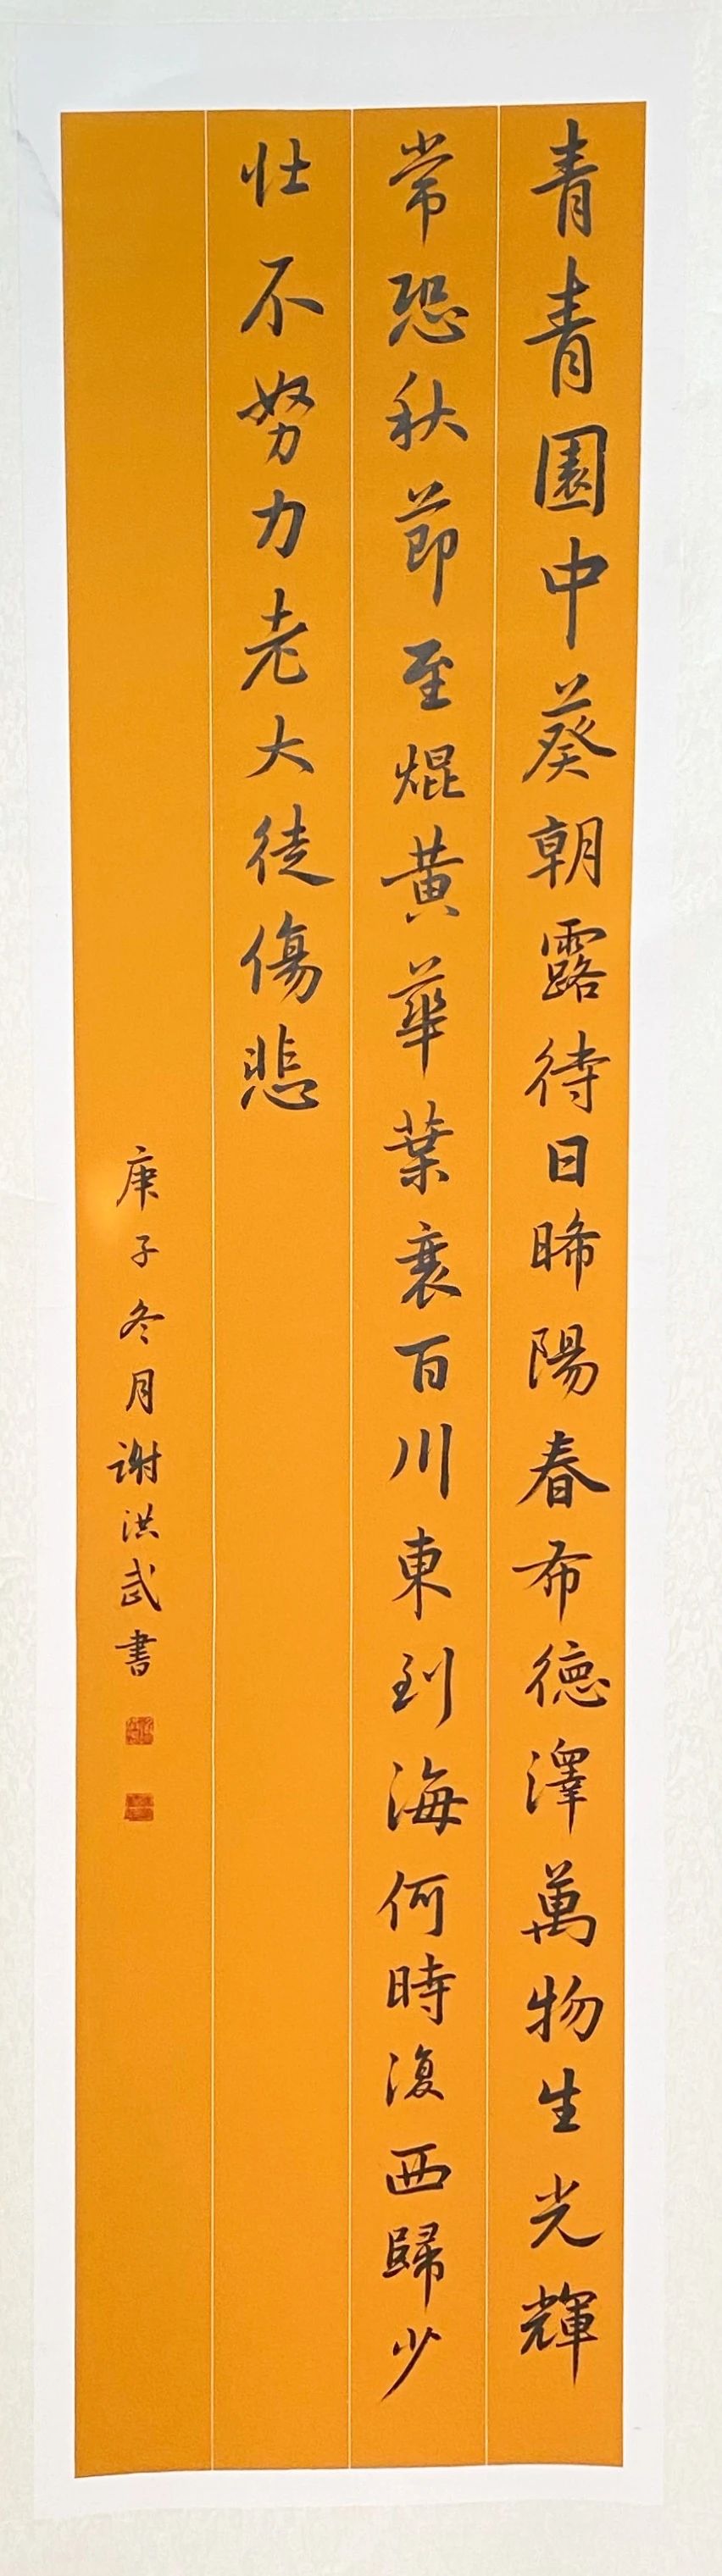 青青園中葵朝露待日晞陽春布德澤萬物生光輝
常恐秋節至焜黃華葉衰百川東到海何時復西歸少
壯不努力老大徒傷悲
庚子冬月谢洪武書